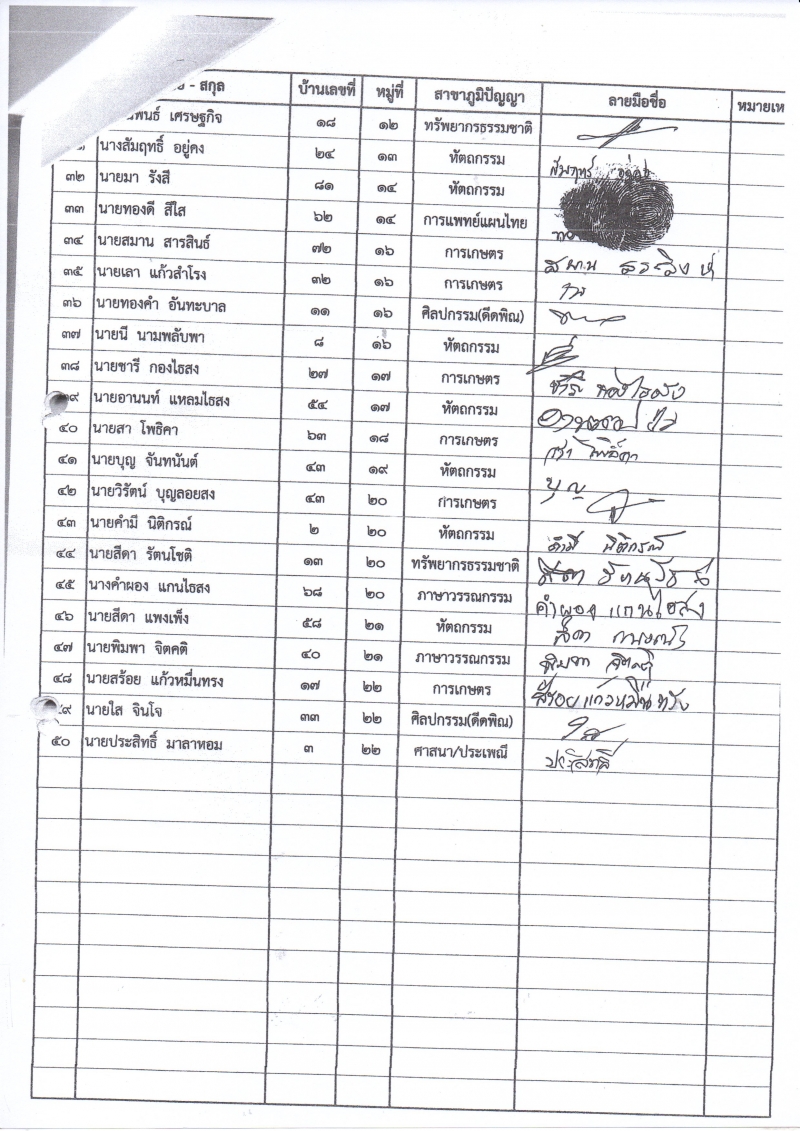 - สกุล บ้านเลขที่ หมู่ที่ สาขาภูมิปัญญา ลายมือชื่อ หมายเห
พันธ์ เศรษฐกิจ ๑๘ ๑๒ ทรัพยากรธรรมชาติ
นางสัมฤทธิ์ อยู่คง ๒๔ ๑๓ หัตถกรรม
๓๒ นายมา รังสี ๘๑ ๑๔ หัตถกรรม
๓๓ นายทองดี สีใส ๖๒ ๑๔ การแพทย์แผนไทย
๓๔ นายสมาน สารสินธ์ ๗๒ ๑๖ การเกษตร
๓๕ นายเลา แก้วสำโรง ๓๒ ๑๖ การเกษตร
๓๖ นายทองคำ อันทะบาล ๑๑ ๑๖ ศิลปกรรม(ดีดพิณ)
๓๗ นายนี นามพลับพา ๘ ๑๖ หัตถกรรม
๓๘ นายชารี กองไธสง ๒๗ ๑๗ การเกษตร
๙ นายอานนท์ แหลมไธสง ๕๔ ๑๗ หัตถกรรม
๔๐ นายสา โพธิคา ๖๓ ๑๘ การเกษตร
๔๑ นายบุญ จันทนันต์ ๔๓ ๑๙ หัตถกรรม บุญ
๔๒ นายวิรัตน์ บุญลอยสง ๔๓ ๒๐ การเกษตร
๔๓ นายคำมี นิติกรณ์ ๒ ๒๐ หัตถกรรม คำมี นิติกรณ์
๔๔ นายสีดา รัตนโชติ ๑๓ ๒๐ ทรัพยากรธรรมชาติ
๔๕ นางคำผอง แกนไธสง ๖๘ ๒๐ ภาษาวรรณกรรม คำผอง แกนไธสง
๔๖ นายสีดา แพงเพ็ง ๕๘ ๒๑ หัตถกรรม
๔๗ นายพิมพา จิตคติ ๔๐ ๒๑ ภาษาวรรณกรรม
๔๘ นายสร้อย แก้วหมื่นทรง ๑๗ ๒๒ การเกษตร
๙ นายใส จินโจ ๓๓ ๒๒ ศิลปกรรม(ดีดพิณ)
๕๐ นายประสิทธิ์ มาลาหอม ๓ ๒๒ ศาสนา/ประเพณี